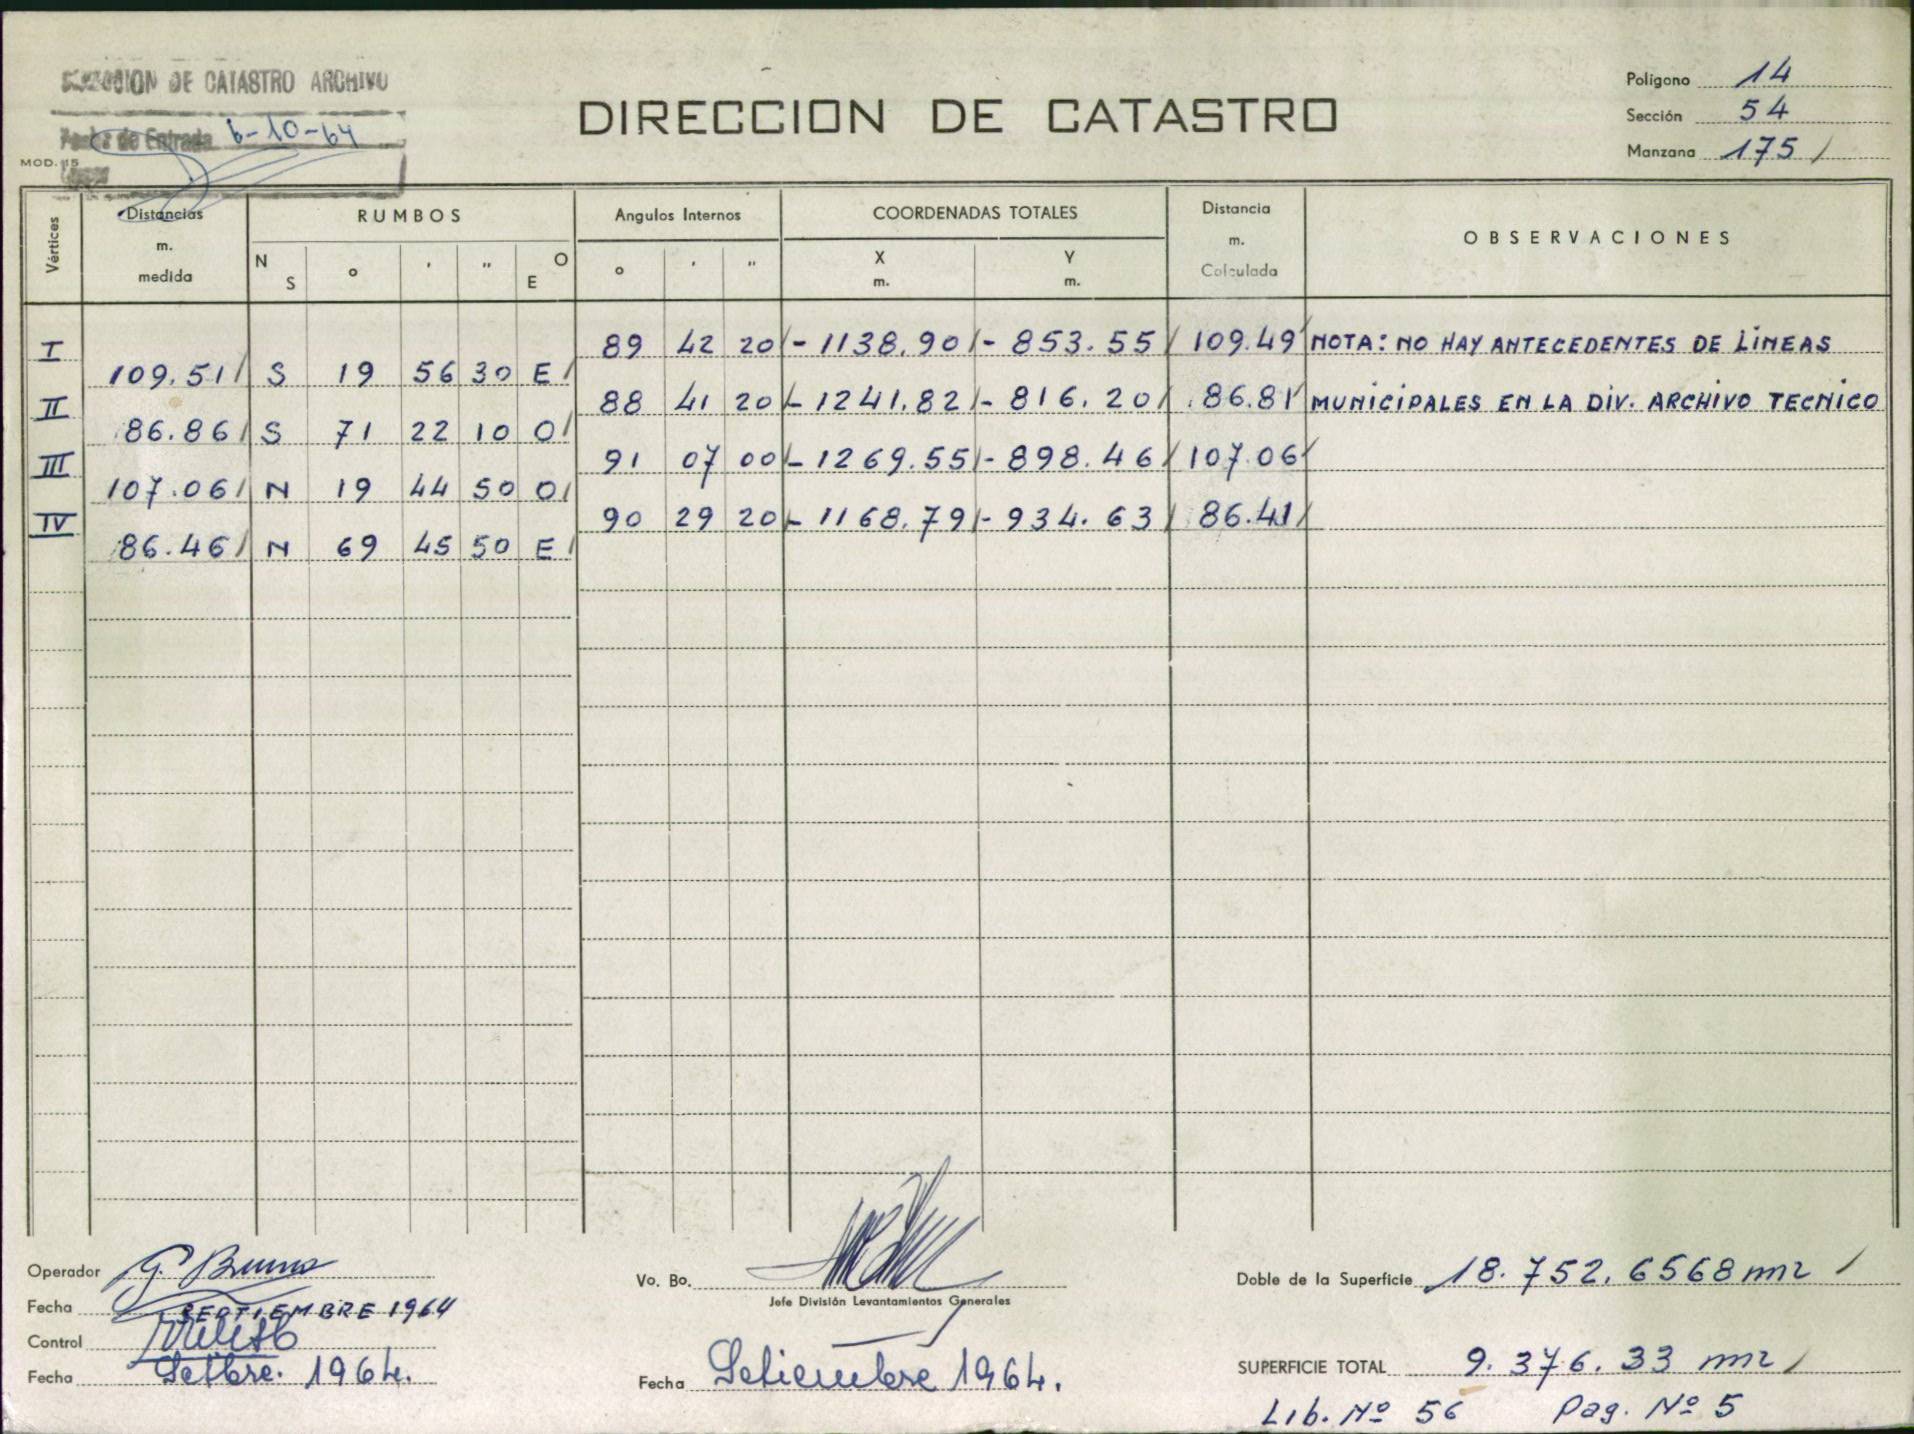 DIRECCION DE CATASTRO ARCHIVO
Fecha de Entrada 6-10-64
MOD. 15
DIRECCION DE CATASTRO
Polígono 14
Sección 54
Manzana 175 /
Vértices Distancias m. medida RUMBOS Angulos Internos COORDENADAS TOTALES Distancia m. Calculada OBSERVACIONES
N S ° ' " O E ° ' " X m. Y m.
I 89 42 20 - 1138.90 - 853.55 109.49 NOTA: NO HAY ANTECEDENTES DE LINEAS
109.51 S 19 56 30 E
II 88 41 20 - 1241.82 - 816.20 86.81 MUNICIPALES EN LA DIV. ARCHIVO TECNICO
86.86 S 71 22 10 O
III 91 07 00 - 1269.55 - 898.46 107.06
107.06 N 19 44 50 O
IV 90 29 20 - 1168.79 - 934.63 86.41
86.46 N 69 45 50 E
Operador G. Bruno
Fecha SEPTIEMBRE 1964
Control
Fecha Setbre. 1964.
Vo. Bo.
Jefe División Levantamientos Generales
Fecha Setiembre 1964.
Doble de la Superficie 18.752,6568 m2 /
SUPERFICIE TOTAL 9.376.33 m2 /
Lib. Nº 56 Pag. Nº 5